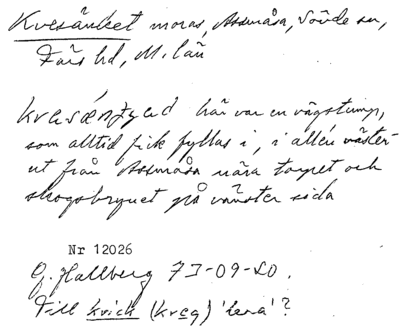 Kvesänket moras, Assmåsa, Sövde sn,
Färs hd, M. län
här var en vägstump,
som alltid fick fyllas i, i allén väster-
ut från Assmåsa nära torpet och
skogsbrynet på vänster sida
Nr 12026
G. Hallberg 73-09-20.
Till kvick (kveg) 'lera'?